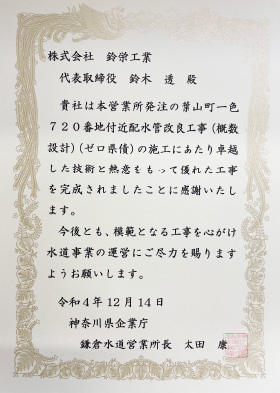 株式会社 鈴栄工業
代表取締役 鈴木 透 殿
貴社は本営業所発注の葉山町一色
720番地付近配水管改良工事(概数
設計)(ゼロ県債)の施工にあたり卓越
した技術と熱意をもって優れた工事
を完成されましたことに感謝いたし
ます。
今後とも、模範となる工事を心がけ
水道事業の運営にご尽力を賜ります
ようお願いします。
令和4年12月14日
神奈川県企業庁
鎌倉水道営業所長 太田 康